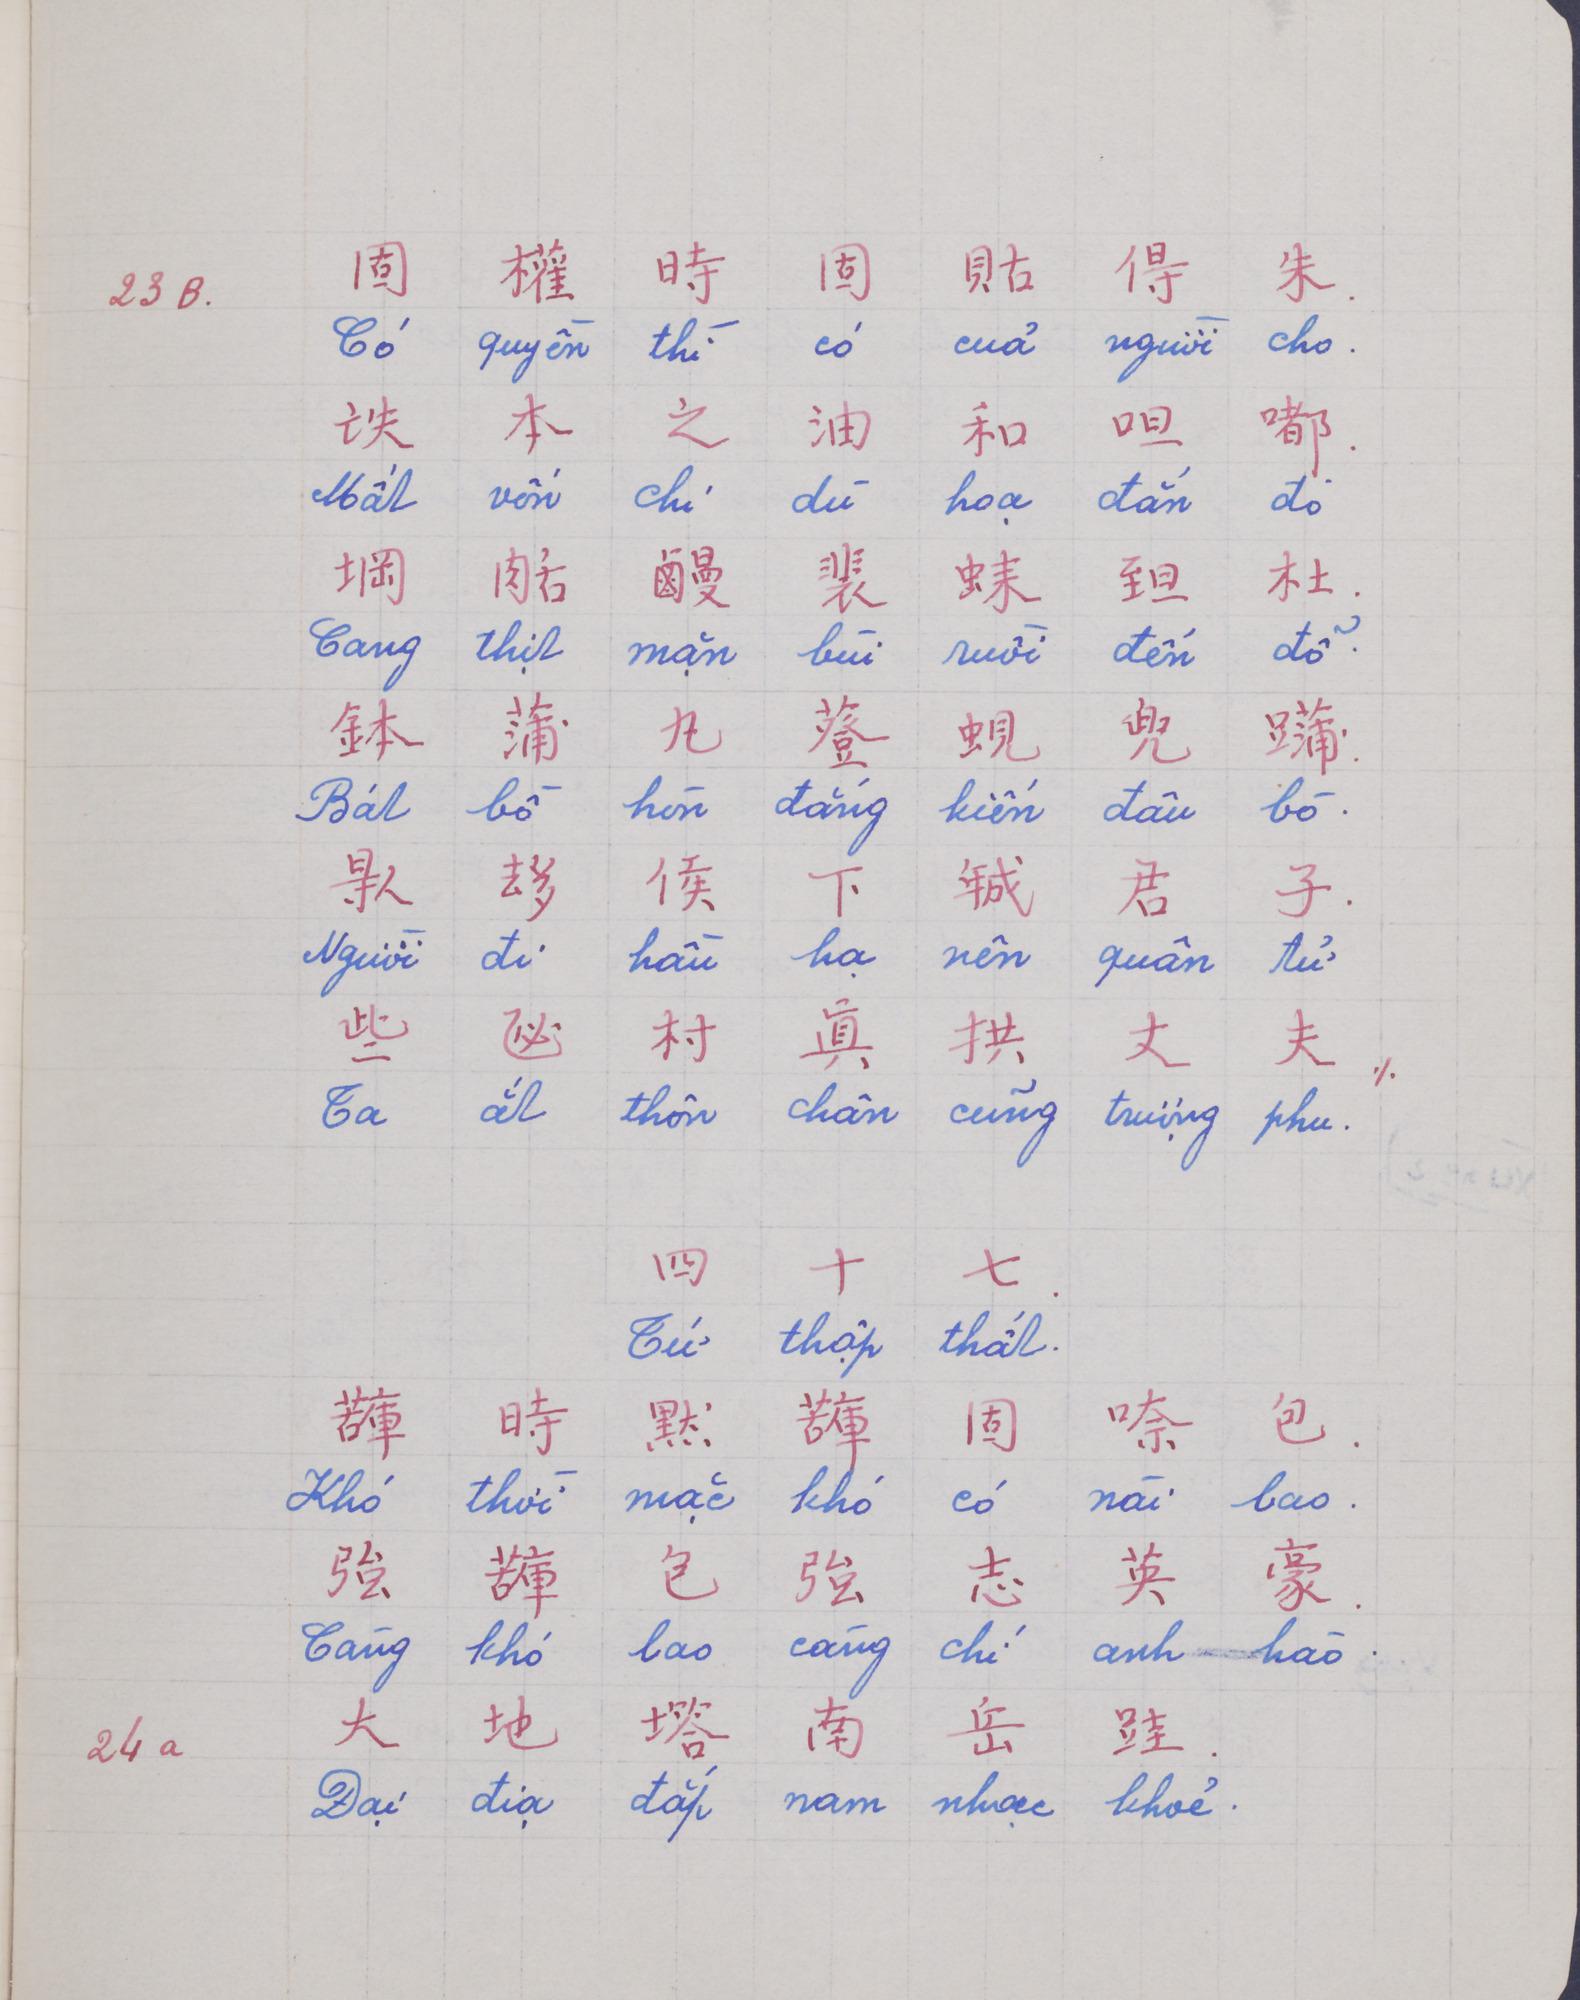 23 B.
固 權 時 固 貼 得 朱.
Có quyền thì có cuả người cho.
本 之 油 和 呾 嘟.
Mất vốn chi dù hoạ đắn đo
堈 裴 杜.
Cang thịt mặn bùi ruồi đến đỗ.
鉢 蒲 丸 蕿 蜆 兜
Bát bồ hòn đắng kiến đâu bò.
侯 下 君 子.
Người đi hầu hạ nên quân tử
些 村 眞 拱 丈 夫 ٪.
Ta ắt thôn chân cũng trượng phu.
四 十 七.
Tứ thập thất.
時 默 固 包.
Khó thời mặc khó có nài bao.
強 包 強 志 英 豪.
Càng khó bao càng chí anh hào.
24 a
大 地 塔 南 岳 跬.
Đại địa đắp nam nhạc khoẻ.